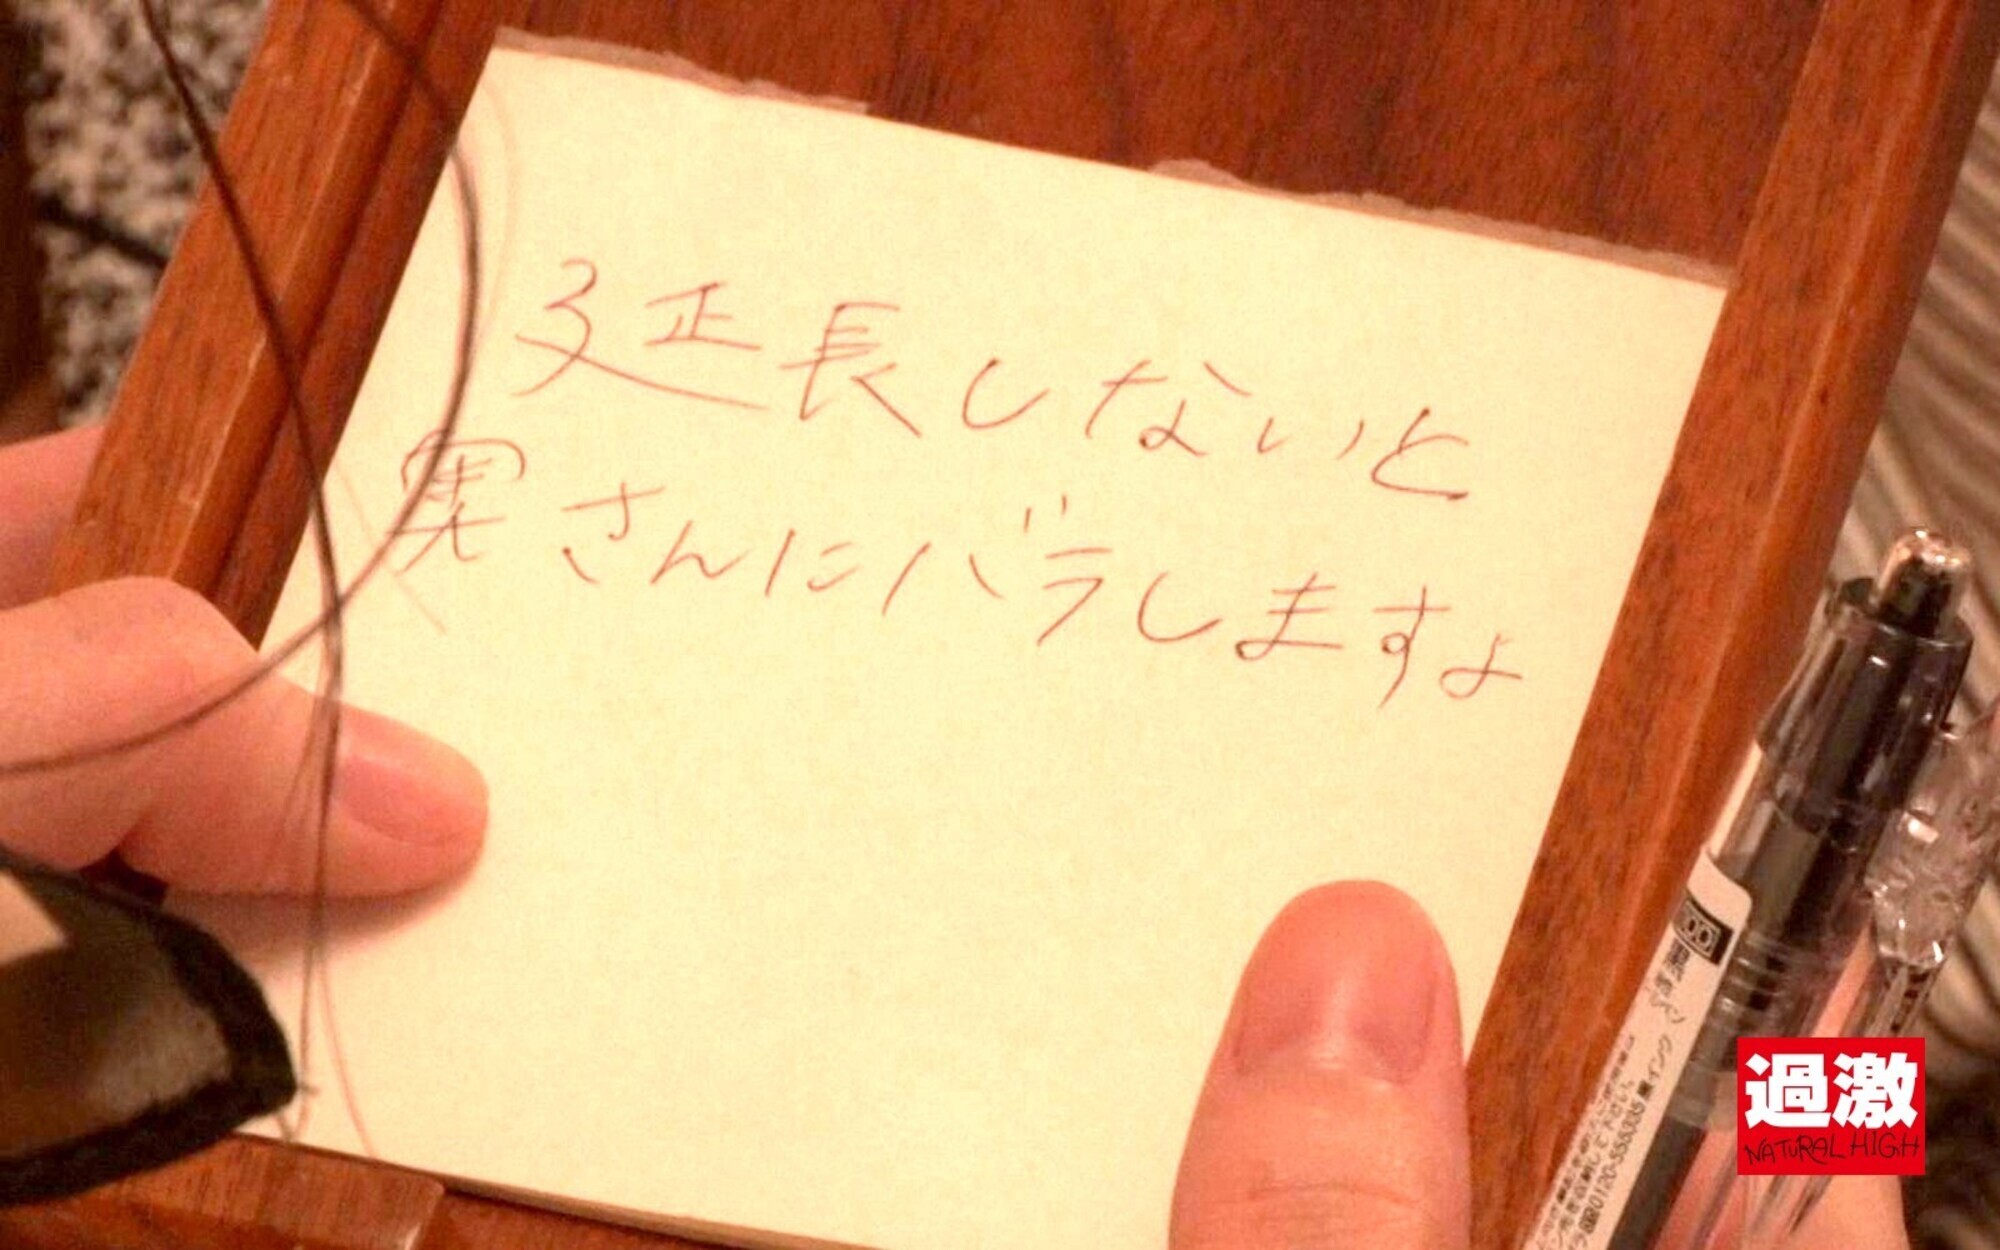 延長しないと
実さんにバラしますよ
過激
NATURAL HIGH